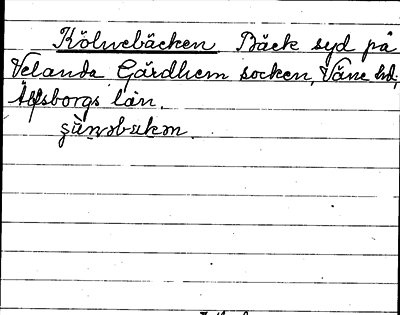 Kölnebäcken Bäck syd på
Velanda Gärdhem socken, Väne hd,
Älfsborgs län.